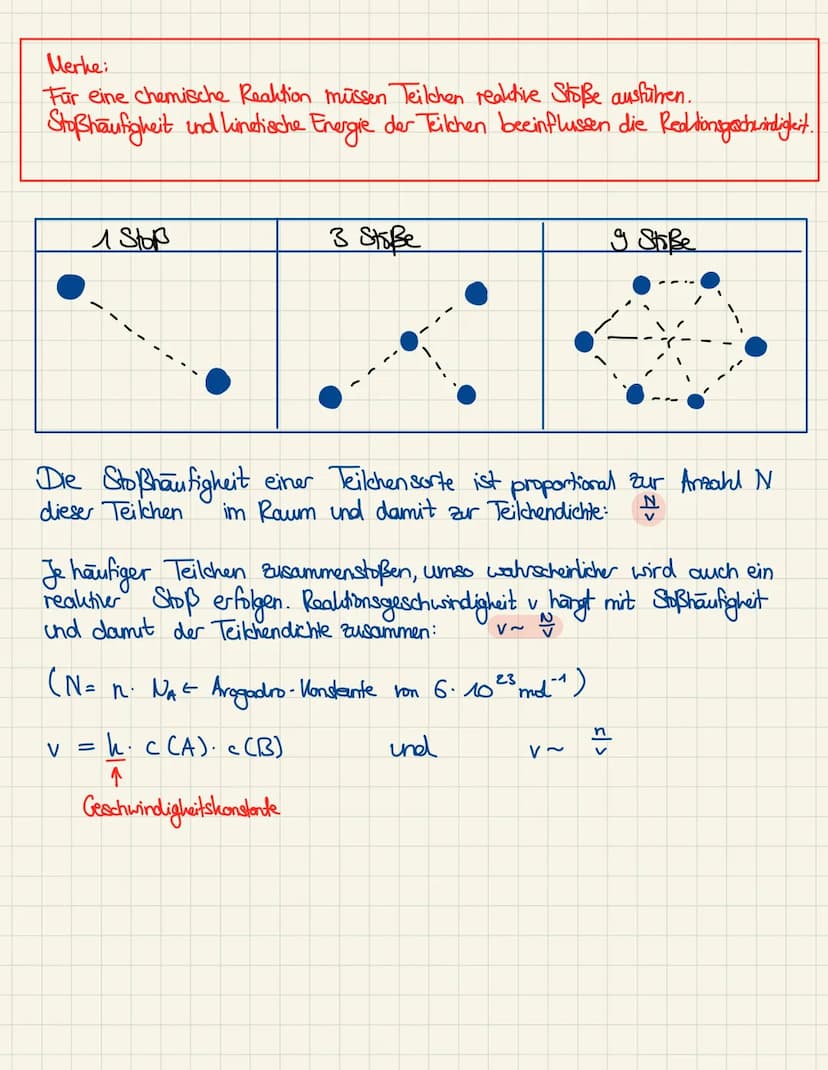 Merke:
Für eine chemische Reaktion müssen Teilchen reaktive Stöße ausführen.
Stoßhäufigkeit und kinetische Energie der Teilchen beeinflussen die Reaktionsgeschwindigkeit.
1 Stoß 3 Stöße 9 Stöße
Die Stoßhäufigkeit einer Teilchensorte ist proportional zur Anzahl N
dieser Teilchen im Raum und damit zur Teilchendichte: N/V
Je häufiger Teilchen zusammenstoßen, umso wahrscheinlicher wird auch ein
reaktiver Stoß erfolgen. Reaktionsgeschwindigkeit v hängt mit Stoßhäufigkeit
und damit der Teilchendichte zusammen: v ~ N/V
(N = n · NA ← Avogadro-Konstante von 6 · 10²³ mol⁻¹)
v = k · c(A) · c(B) und v ~ n/V
↑
Geschwindigkeitskonstante